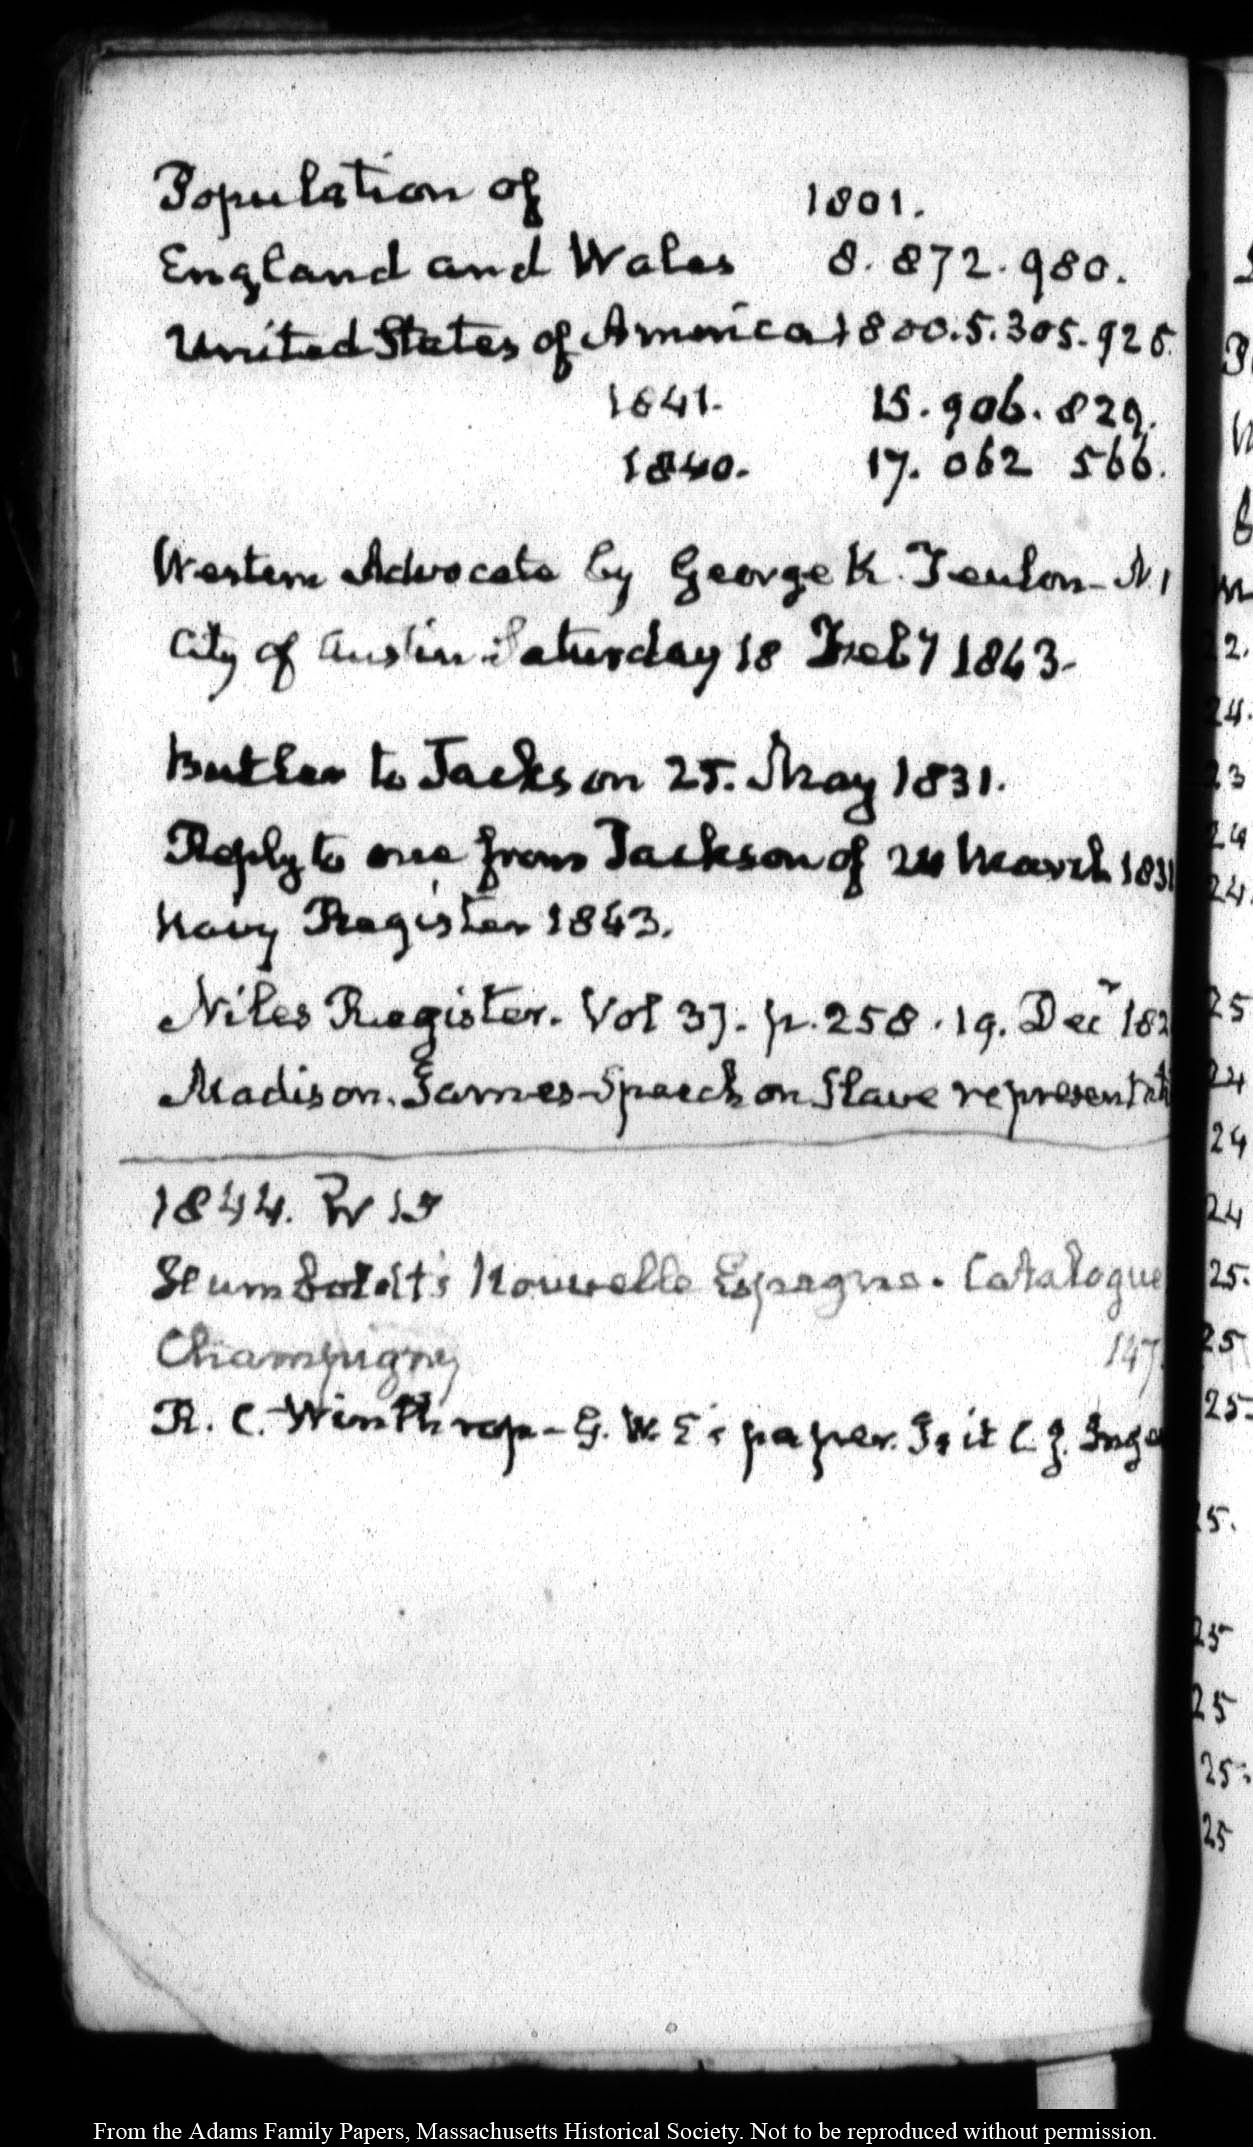 Population of 1801.
England and Wales 8.872.980.
United States of America 1800.5.305.925.
1841. 15.906.829.
1840. 17.062 566.
Western Advocate by George K. Teulon - N. 1
City of Austin Saturday 18 Feby 1843.
Butler to Jackson 25. May 1831.
Reply to one from Jackson of 24 March 1831
Navy Register 1843.
Niles Register. Vol 37. p. 258. 19. Decr 182
Madison. James - Speech on Slave representat
1844. IV 15
Humboldt's Nouvelle Espagne. Catalogue
Champigny 147.
R. C. Winthrop - G. W. E's paper. Is it C. J. Inge
From the Adams Family Papers, Massachusetts Historical Society. Not to be reproduced without permission.